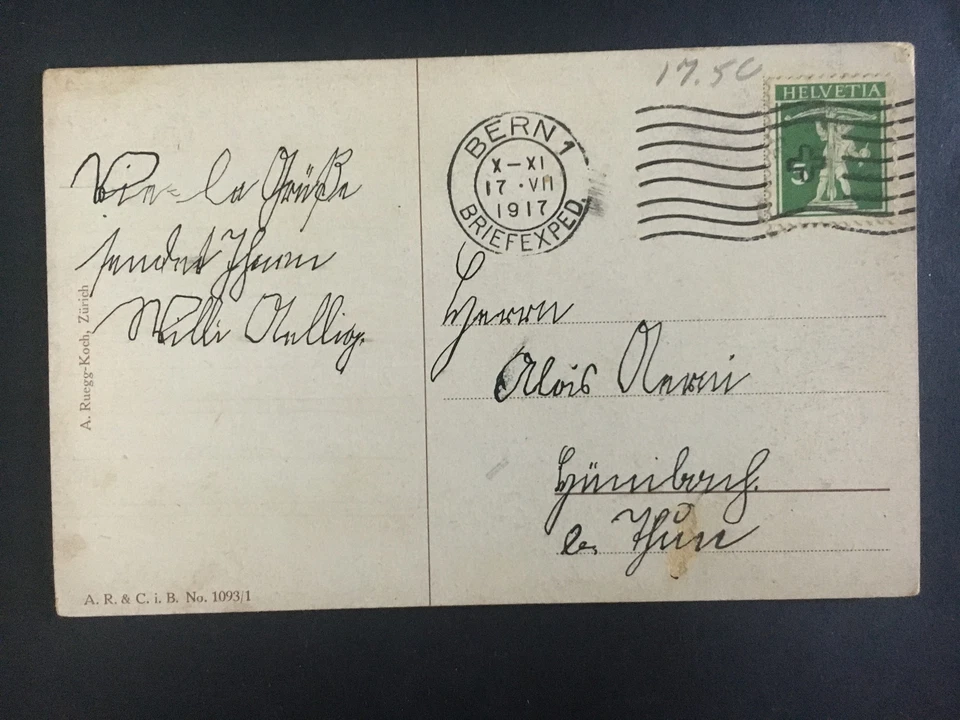 17.50
HELVETIA
BERN 1
X-XI
17·VII
1917
BRIEFEXPED.
5
Vie=le Grüße
sendet Ihnen
Willi
A. Ruegg-Koch, Zürich
Herrn
Alois Aerni
Hünibach.
b. Thun
A. R. & C. i. B. No. 1093/1